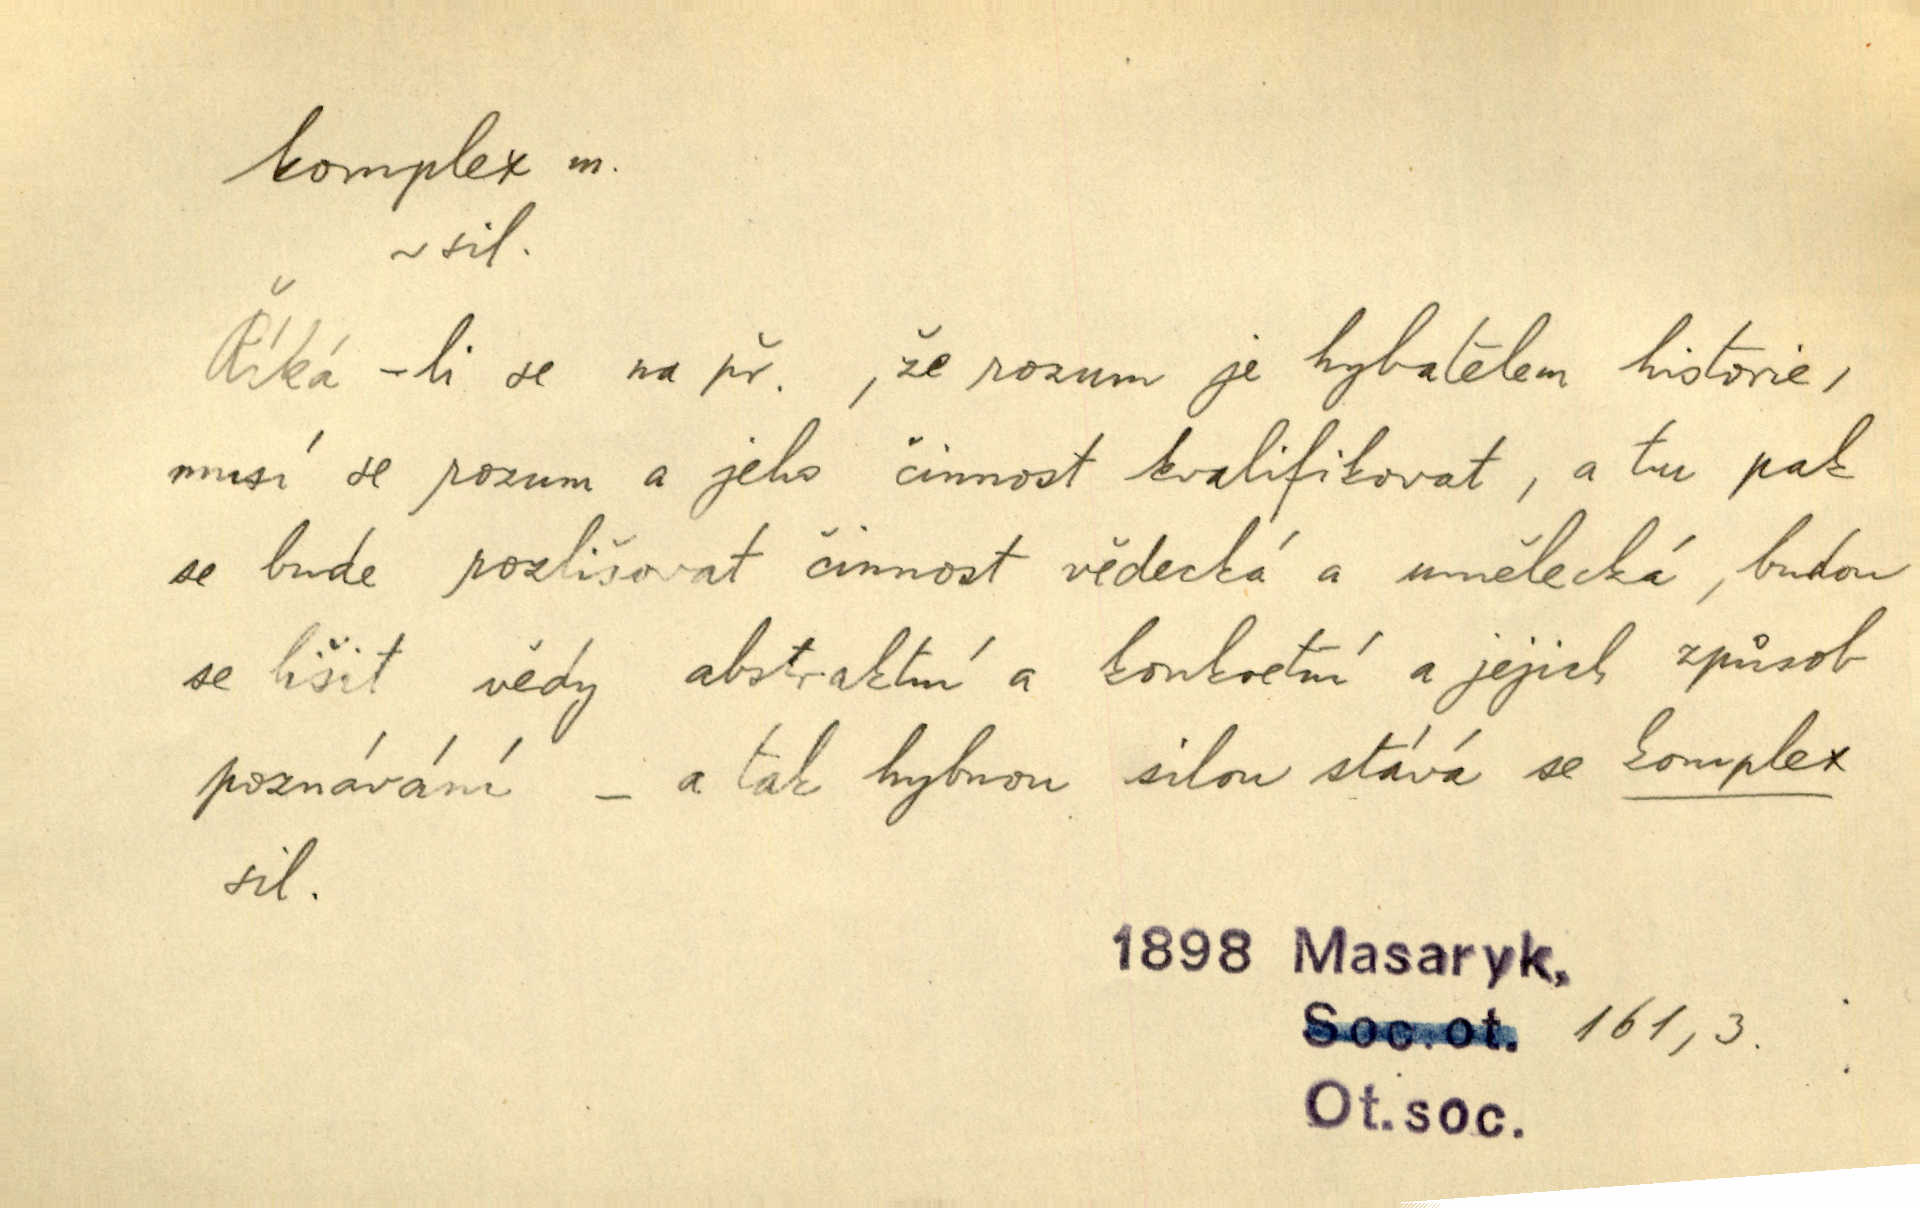 komplex m.
~ sil.
Říká-li se na př., že rozum je hybatelem historie,
musí se rozum a jeho činnost kvalifikovat, a tu pak
se bude rozlišovat činnost vědecká a umělecká, budou
se lišit vědy abstraktní a konkretní a jejich způsob
poznávání – a tak hybnou silou stává se komplex
sil.
1898 Masaryk,
Soc. ot. 161, 3.
Ot. soc.